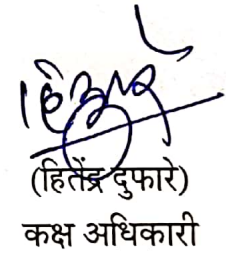 (हितेंद्र दुफारे)
कक्ष अधिकारी